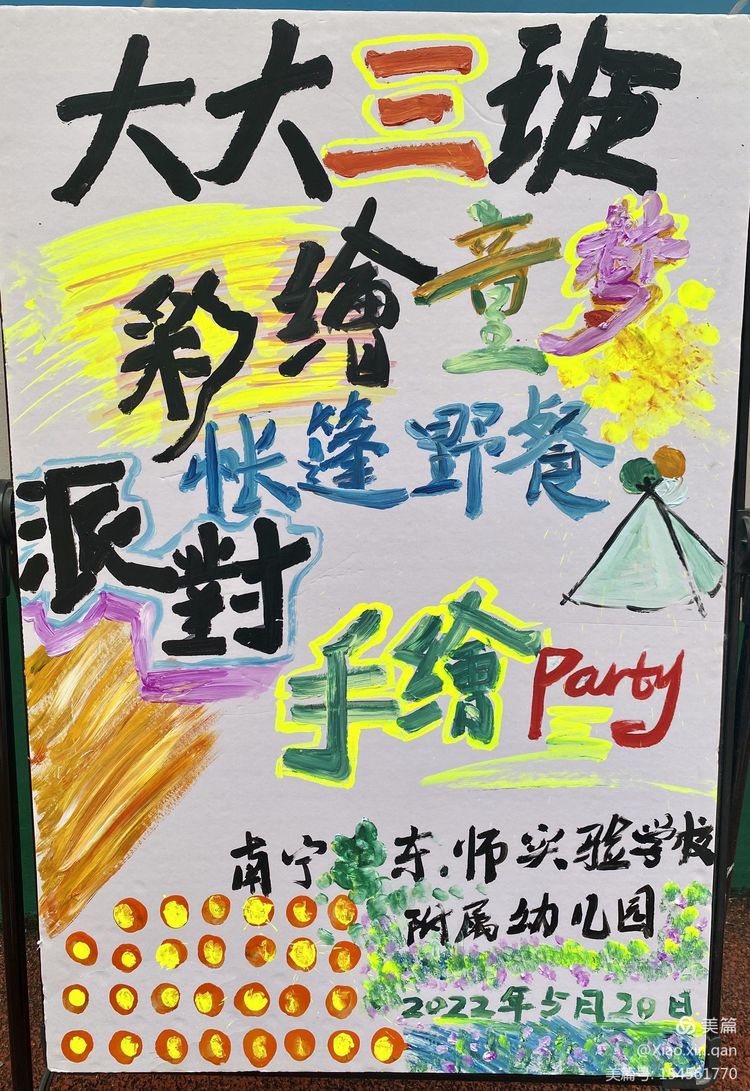 大大三班
彩繪童梦
帐篷野餐
派對
手繪Party
南宁华东师实验学校
附属幼儿园
2022年5月20日
美篇
@Xiao.xin.qan
美篇号: 154561770